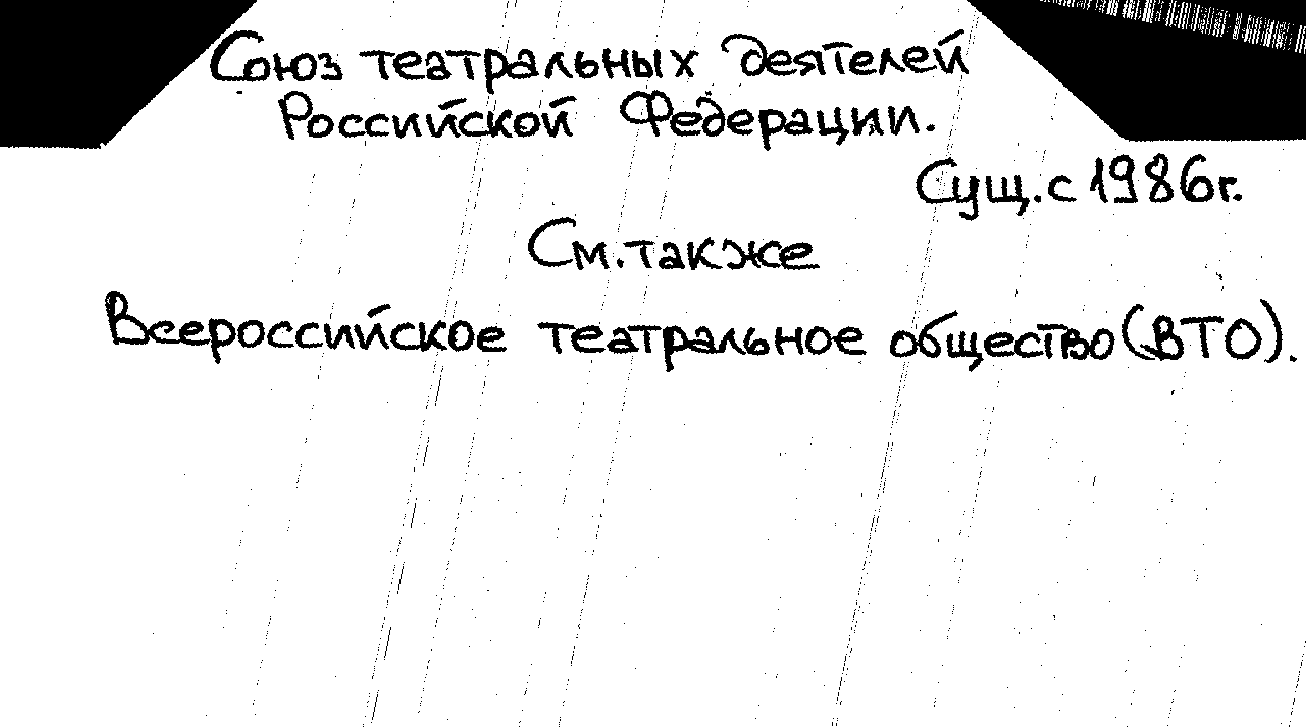 Союз театральных деятелей
Российской Федерации.
Сущ. с 1986г.
См. также
Всероссийское театральное общество (ВТО).